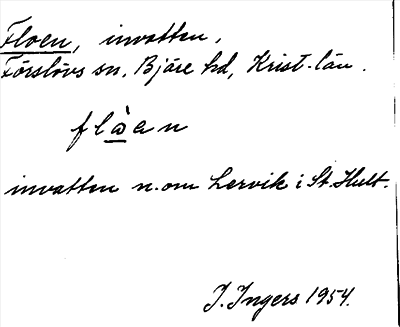 Floen, invatten.
Förslövs sn, Bjäre hd, Krist-län.
flὼan
invatten n. om Lervik i St. Hult.
I. Ingers 1954.